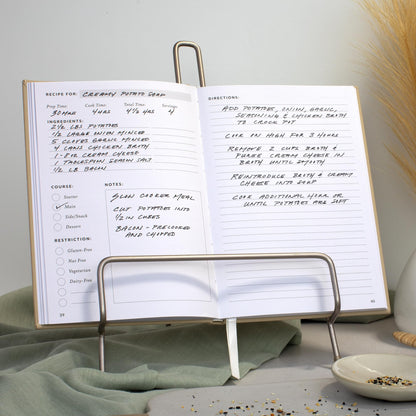 RECIPE FOR: CREAMY POTATO SOUP
Prep Time: Cook Time: Total Time: Servings:
30 MINS 4 HRS 4 1/2 HRS 4
INGREDIENTS:
2 1/2 LBS POTATOES
1/2 LARGE ONION MINCED
5 CLOVES GARLIC MINCED
4 CANS CHICKEN BROTH
1 - 8 OZ CREAM CHEESE
1 TABLESPOON SEASON SALT
1/2 LB BACON
COURSE:
Starter
Main
Side/Snack
Dessert
RESTRICTION:
Gluten-Free
Nut Free
Vegetarian
Dairy-Free
NOTES:
SLOW COOKER MEAL
CUT POTATOES INTO
1/2 IN CUBES
BACON - PRECOOKED
AND CHOPPED
39
DIRECTIONS:
ADD POTATOES, ONION, GARLIC,
SEASONING & CHICKEN BROTH
TO CROCK POT
COOK ON HIGH FOR 3 HOURS
REMOVE 2 CUPS BROTH &
PUREE CREAM CHEESE IN
BROTH UNTIL SMOOTH
REINTRODUCE BROTH & CREAMY
CHEESE INTO SOUP
COOK ADDITIONAL HOUR OR
UNTIL POTATOES ARE SOFT
40